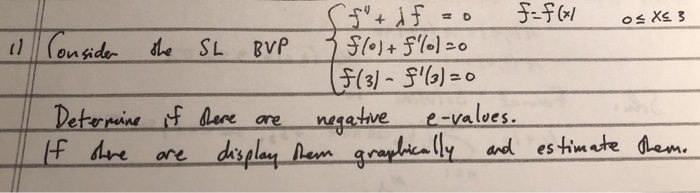 f" + λf = 0    f=f(x)    0≤X≤3
1) Consider the SL BVP    f(0)+f'(0)=0
f(3) - f'(3)=0
Determine if there are negative e-values.
If there are display them graphically and estimate them.